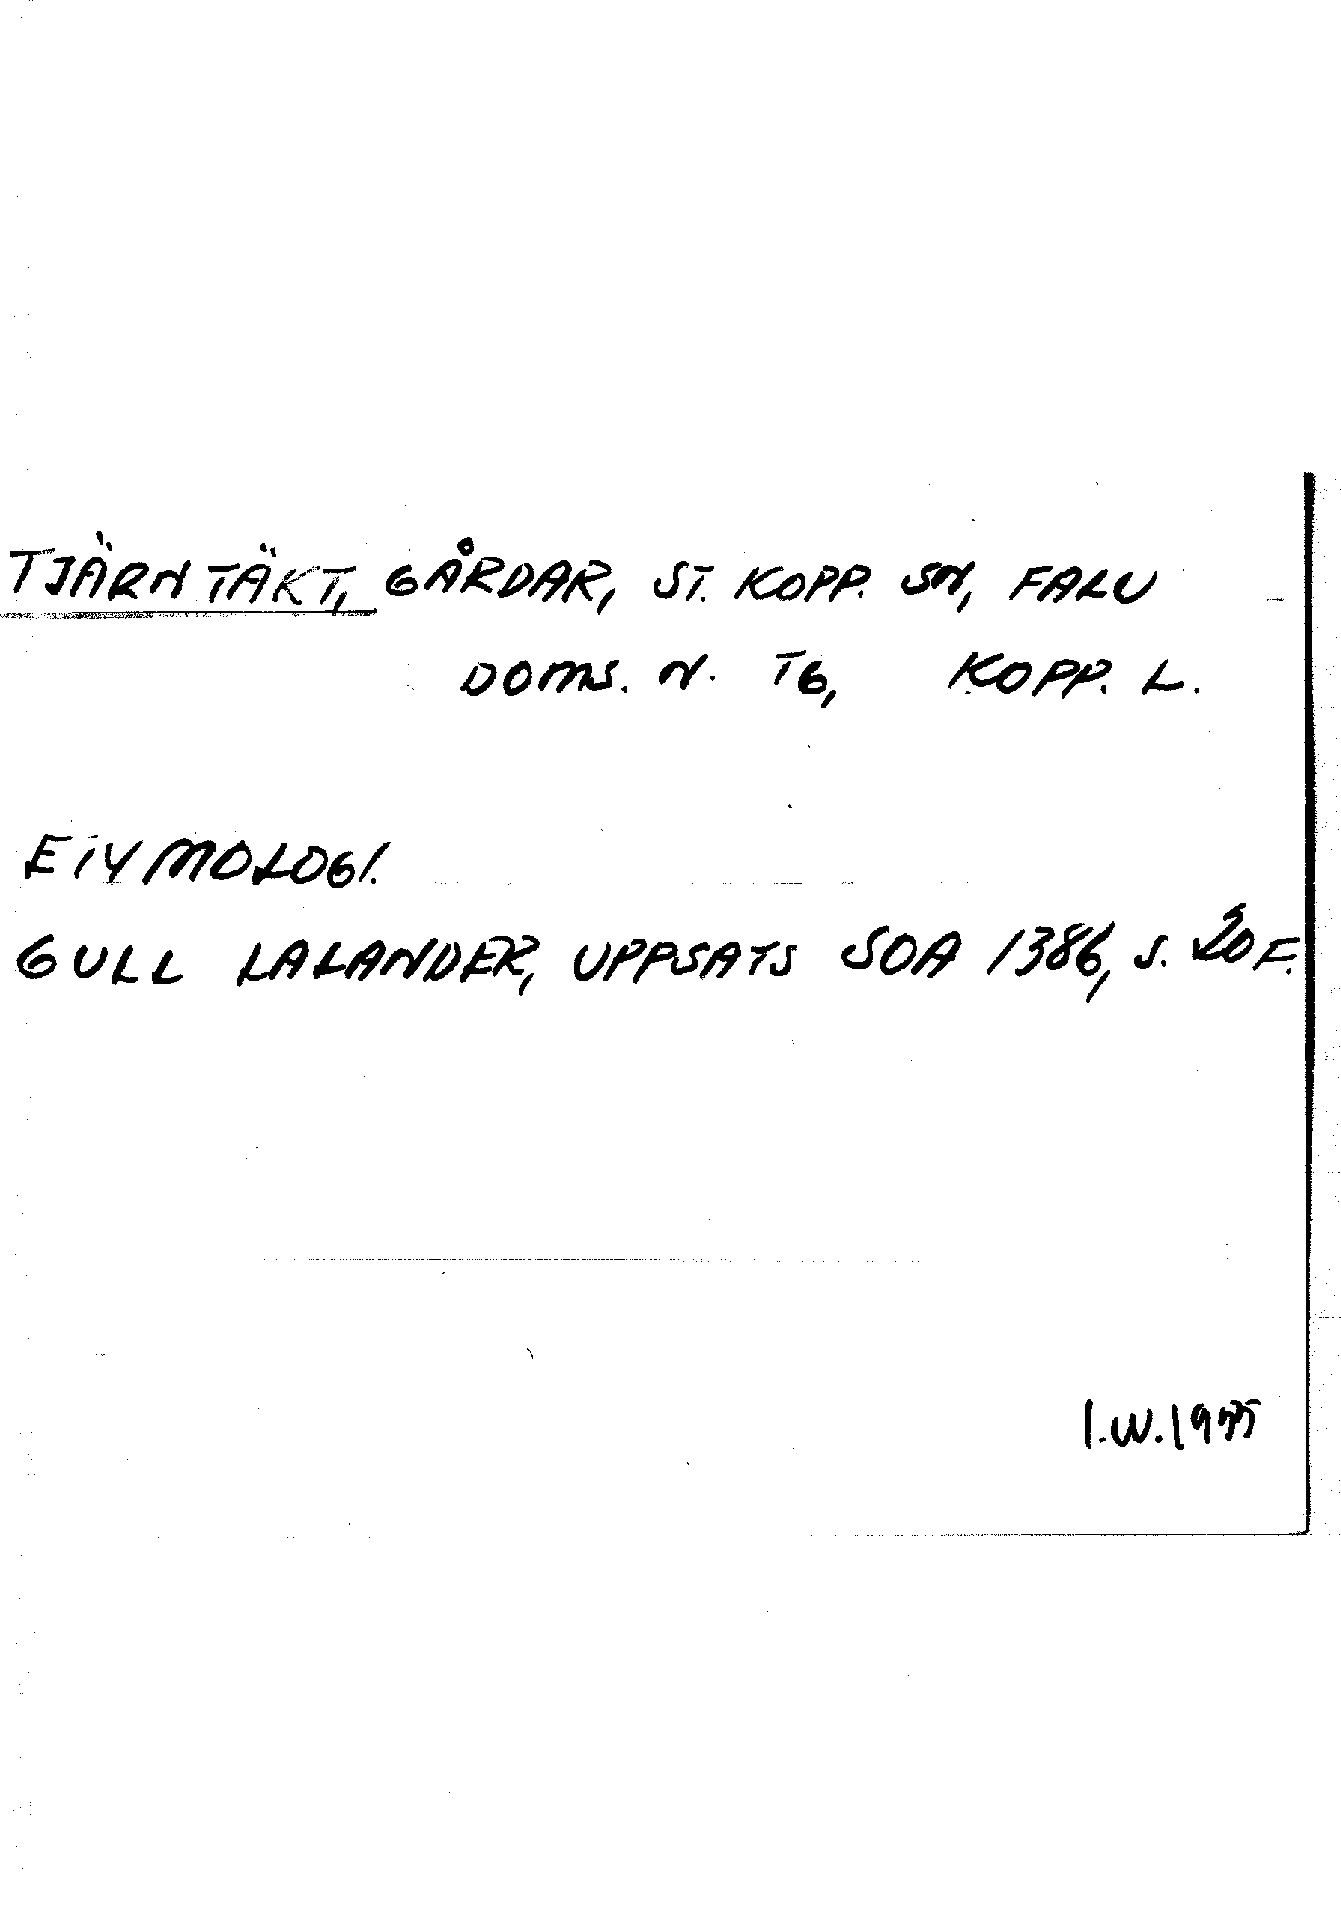 TJÄRNTÄKT, GÅRDAR, ST. KOPP. SN, FALU
DOMS. N. TG, KOPP. L.
ETYMOLOGI.
GULL LALANDER, UPPSATS SOA 1386, S. 20 F.
I.W. 1975